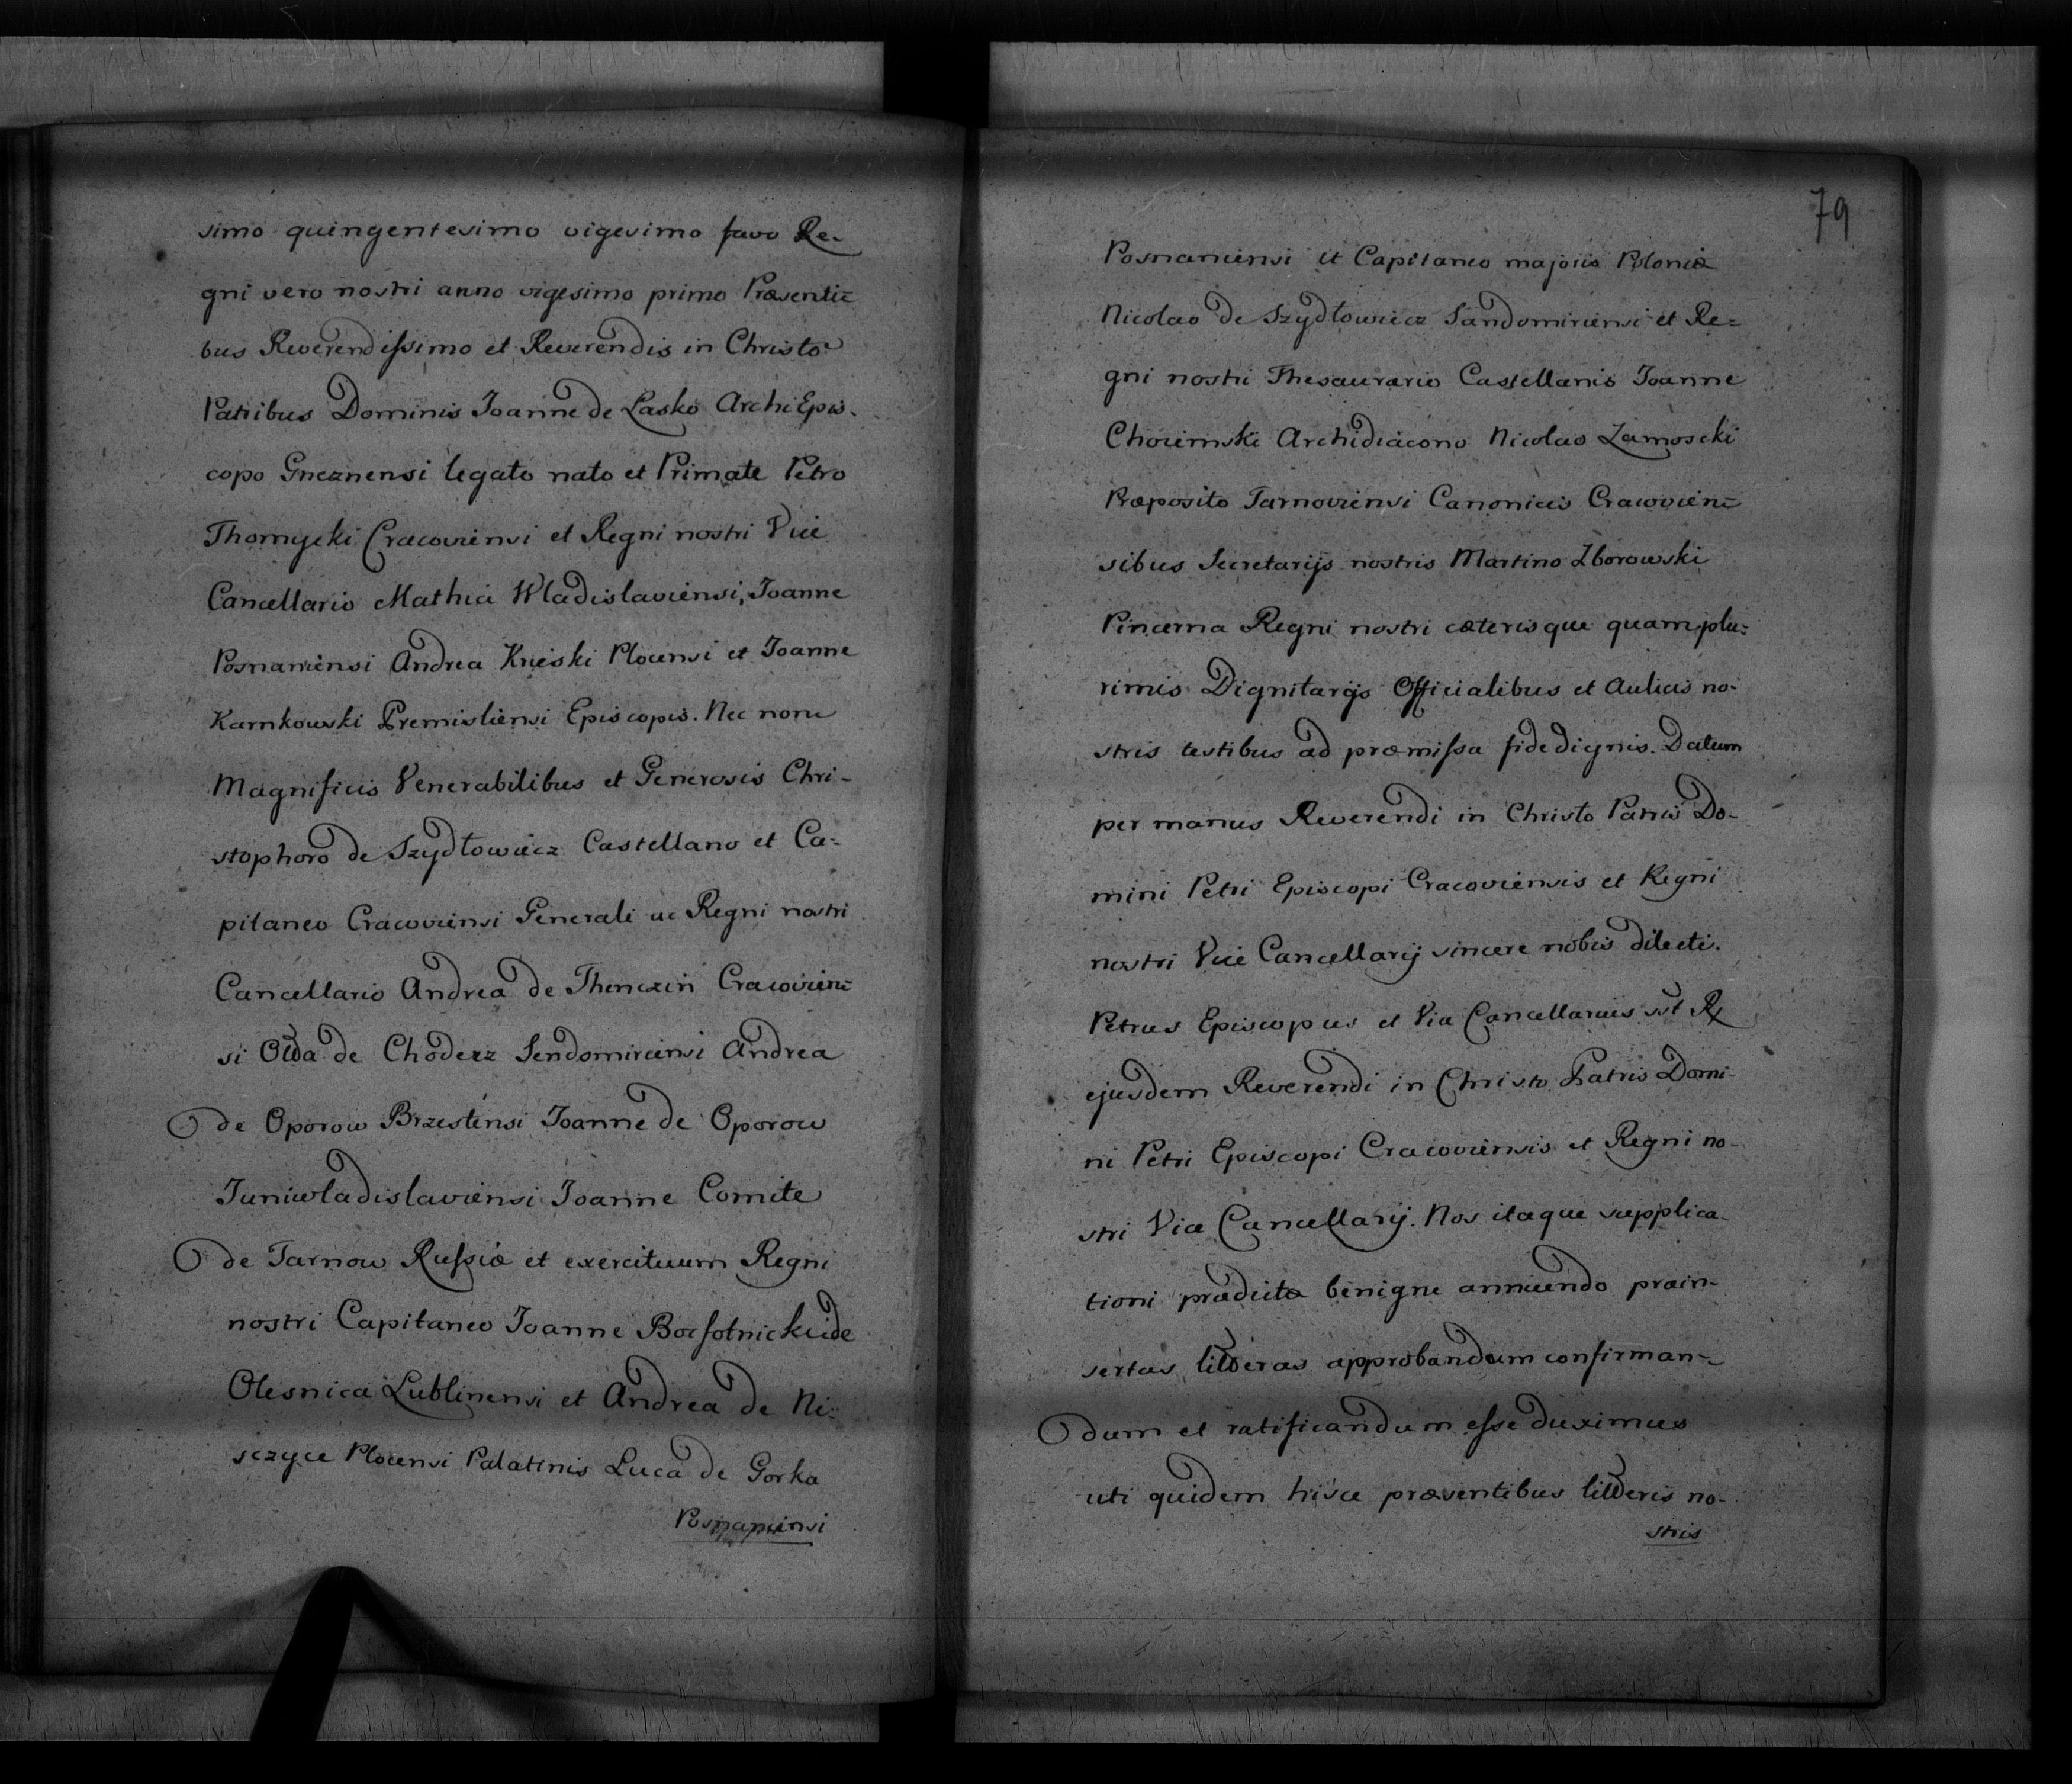 simo quingentesimo vigesimo favo Re-
gni vero nostri anno vigesimo primo Præsenti=
bus Reverendissimo et Reverendis in Christo
Patribus Dominis Joanne de Lasko ArchiEpis-
copo Gneznensi legato nato et Primate Petro
Thomycki Cracoviensi et Regni nostri Vice
Cancellario Mathia Wladislaviensi, Joanne
Posnaniensi Andrea Krieski Plocensi et Joanne
Karnkowski Premisliensi Episcopis. Nec non
Magnificis Venerabilibus et Generosis Chri-
stophoro de Szydłowiecz Castellano et Ca=
pitaneo Cracoviensi Generali ac Regni nostri
Cancellario Andrea de Thenczin Cracovien=
si Otta de Choderz Sendomiriensi Andrea
de Oporow Brzestensi Joanne de Oporow
Juniwladislaviensi Joanne Comite
de Tarnow Russiæ et exercituum Regni
nostri Capitaneo Joanne Bocsotnicki de
Olesnica Lublinensi et Andrea de Ni-
sczyce Plocensi Palatinis Luca de Gorka
Posnaniensi
79
Posnaniensi et Capitaneo majoris Poloniæ
Nicolao de Szydłowiecz Sandomiriensi et Re=
gni nostri Thesaurario Castellanis Joanne
Choiemski Archidiacono Nicolao Zamoscki
Præposito Tarnoviensi Canonicis Cracovien=
sibus Secretarijs nostris Martino Zborowski
Pincerna Regni nostri cæterisque quamplu=
rimis Dignitarijs Officialibus et Aulicis no-
stris testibus ad præmissa fide dignis. Datum
per manus Reverendi in Christo Patris Do-
mini Petri Episcopi Cracoviensis et Regni
nostri Vice Cancellarij sincere nobis dilecti.
Petrus Episcopus et Vice Cancellarius sst R
ejusdem Reverendi in Christo Patris Domi-
ni Petri Episcopi Cracoviensis et Regni no-
stri Vice Cancellarij. Nos itaque supplica-
tioni prædictæ benigne annuendo præin-
sertas litteras approbandum confirman-
dum et ratificandum esse duximus
uti quidem hisce præsentibus litteris no-
stris